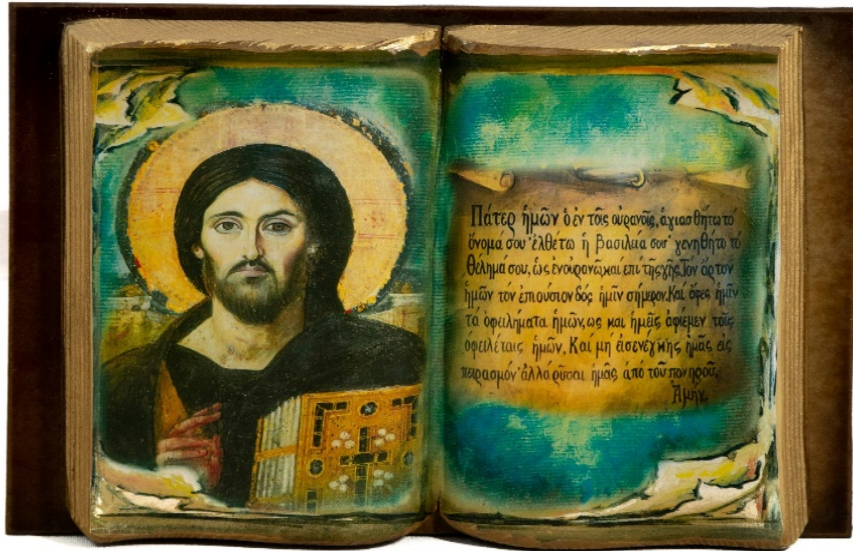 Πάτερ ἡμῶν ὁ ἐν τοῖς οὐρανοῖς, ἁγιασθήτω τό
ὄνομά σου· ἐλθέτω ἡ βασιλεία σου· γενηθήτω τό
θέλημά σου, ὡς ἐν οὐρανῷ καί επί τῆς γῆς. Τόν ἄρτον
ἡμῶν τόν ἐπιούσιον δός ἡμῖν σήμερον. Καί ἄφες ἡμῖν
τά ὀφειλήματα ἡμῶν, ως καί ἡμεῖς ἀφίεμεν τοῖς
οφειλέταις ἡμῶν. Καί μή εἰσενέγκῃς ἡμᾶς εἰς
πειρασμόν· ἀλλά ρῦσαι ἡμᾶς ἀπό τοῦ πονηροῦ.
Ἀμήν.